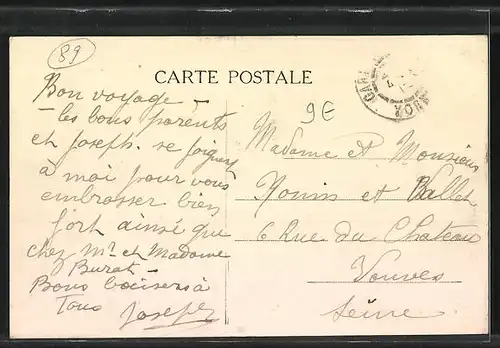 89
CARTE POSTALE
9E
Bon voyage -
- les bons parents
et Joseph. se joignent
à moi pour vous
embrasser bien
fort ainsé que
chez Mr et Madame
Burat -
Bons baisers à
Tous
Joseph
Madame et Monsieur
et
6 Rue du Chateau
Vouves
Seine